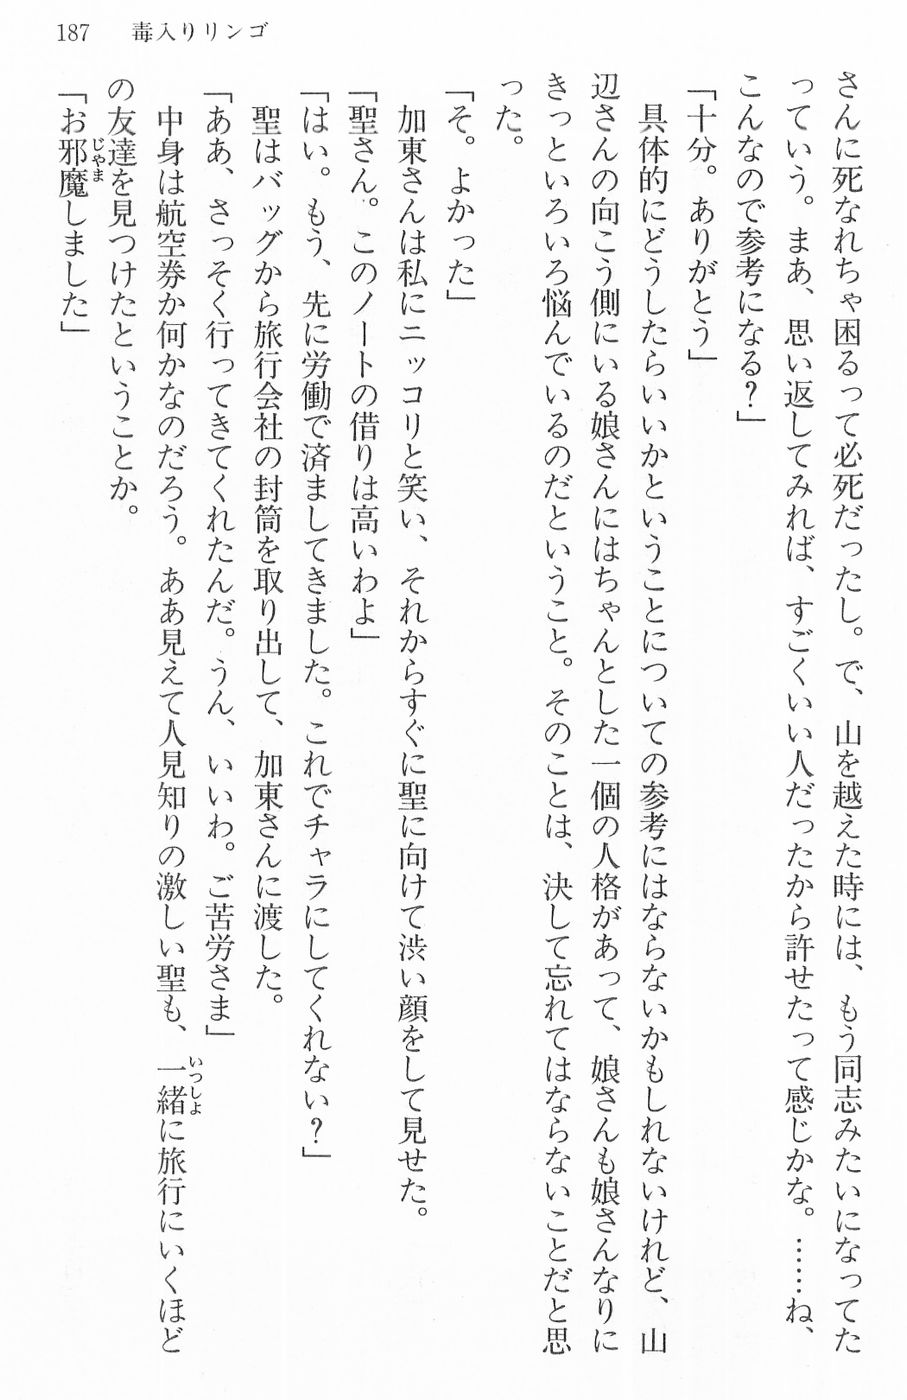 187　毒入りリンゴ
さんに死なれちゃ困るって必死だったし。で、山を越えた時には、もう同志みたいになってた
っていう。まあ、思い返してみれば、すごくいい人だったから許せたって感じかな。……ね、
こんなので参考になる？」
「十分。ありがとう」
　具体的にどうしたらいいかということについての参考にはならないかもしれないけれど、山
辺さんの向こう側にいる娘さんにはちゃんとした一個の人格があって、娘さんも娘さんなりに
きっといろいろ悩んでいるのだということ。そのことは、決して忘れてはならないことだと思
った。
「そ。よかった」
　加東さんは私にニッコリと笑い、それからすぐに聖に向けて渋い顔をして見せた。
「聖さん。このノートの借りは高いわよ」
「はい。もう、先に労働で済ましてきました。これでチャラにしてくれない？」
　聖はバッグから旅行会社の封筒を取り出して、加東さんに渡した。
「ああ、さっそく行ってきてくれたんだ。うん、いいわ。ご苦労さま」
　中身は航空券か何かなのだろう。ああ見えて人見知りの激しい聖も、一緒に旅行にいくほど
いつしよ
の友達を見つけたということか。
「お邪魔しました」
じゃま